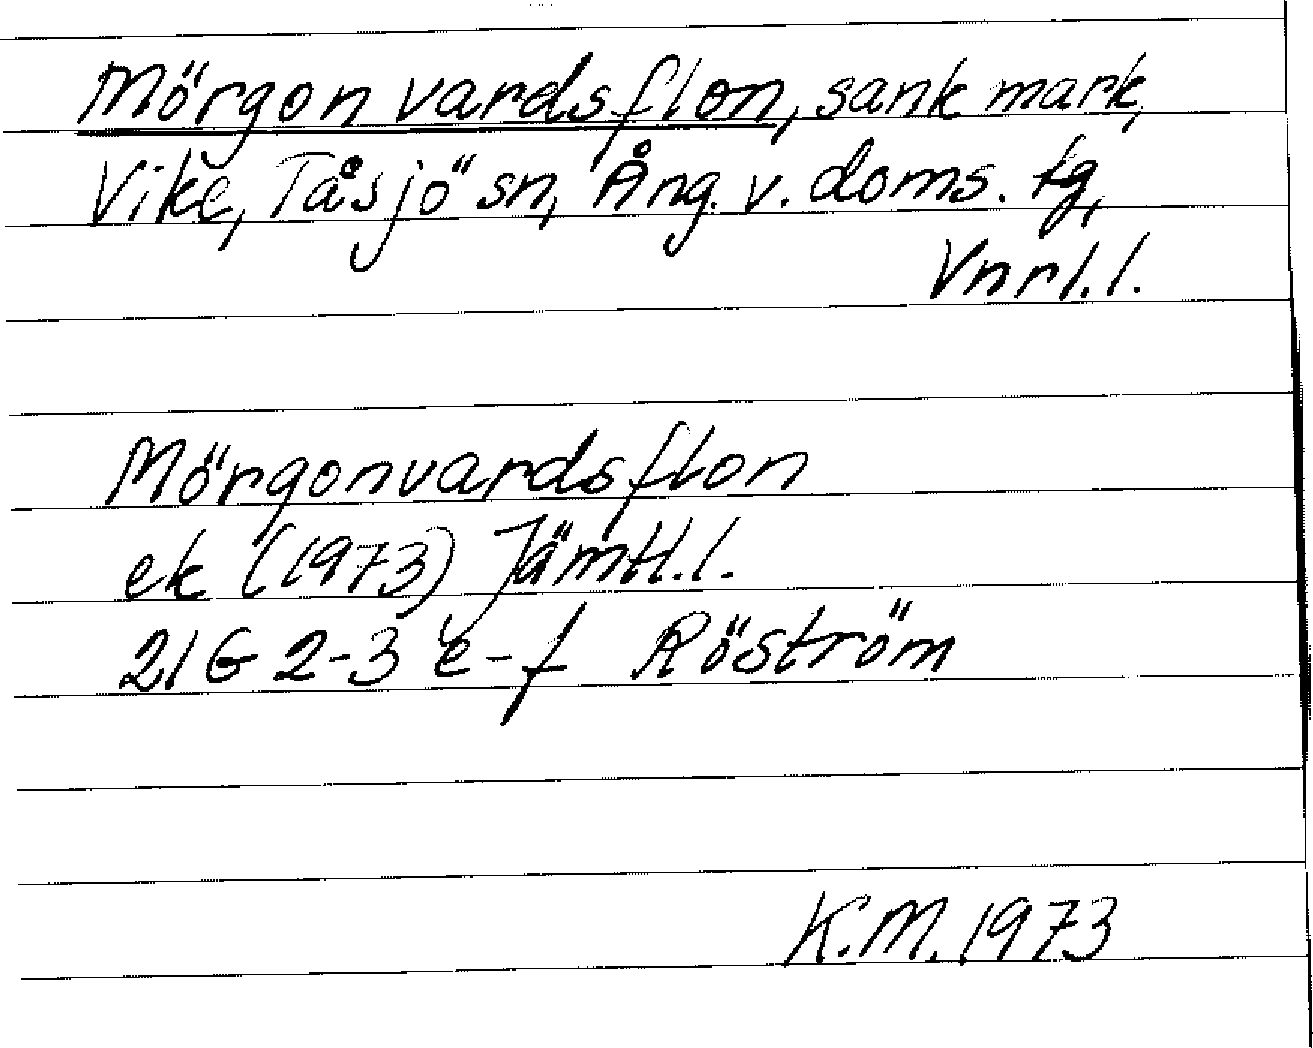 Mörgonvardsflon, sank mark,
Vike, Tåsjö sn, Ång. v. doms. tg,
Vnrl.l.
Mörgonvardsflon
ek (1973) Jämtl.l.
21G 2-3 e-f Röström
K.M. 1973